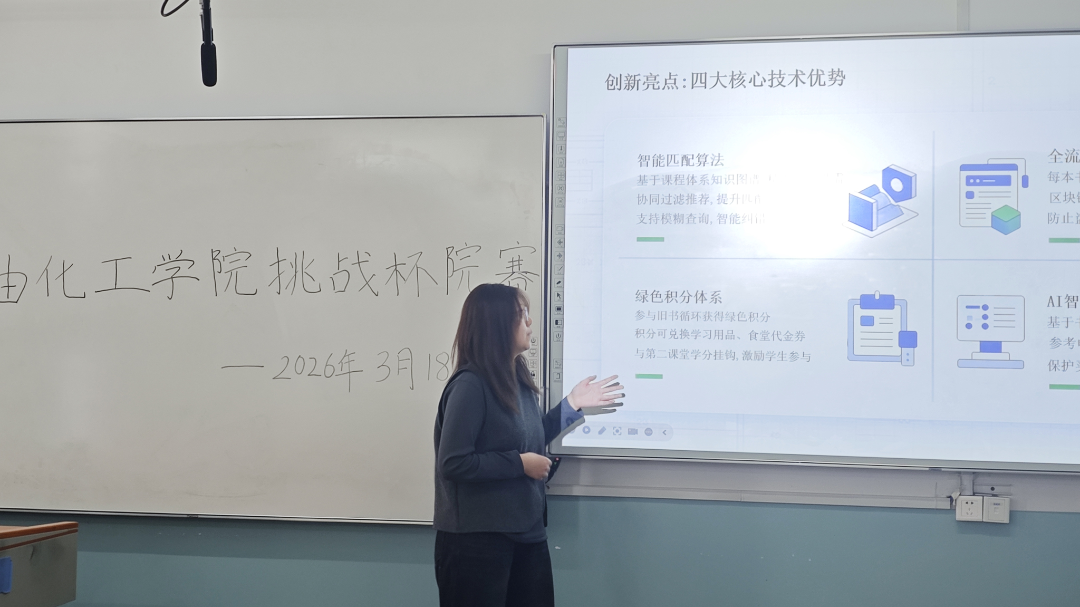 油化工学院挑战杯院赛
—2026年 3月18
创新亮点:四大核心技术优势
智能匹配算法
基于课程体系知识图
协同过滤推荐, 提升
支持模糊查询, 智能纠
全流
每本
区块
防止
绿色积分体系
参与旧书循环获得绿色积分
积分可兑换学习用品、食堂代金券
与第二课堂学分挂钩, 激励学生参与
AI智
基于
参考
保护